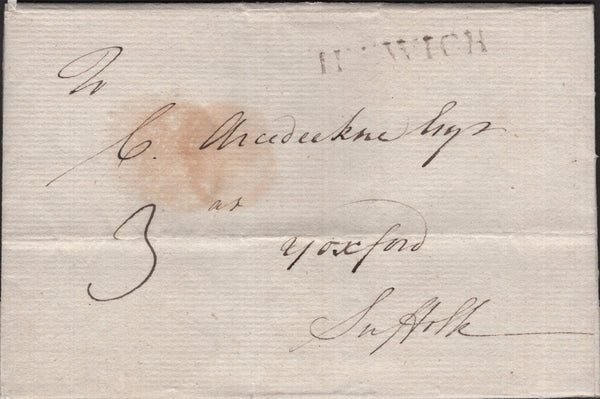 IPSWICH
To
C. Arcedeckne Esqr
at
Yoxford
3
Suffolk